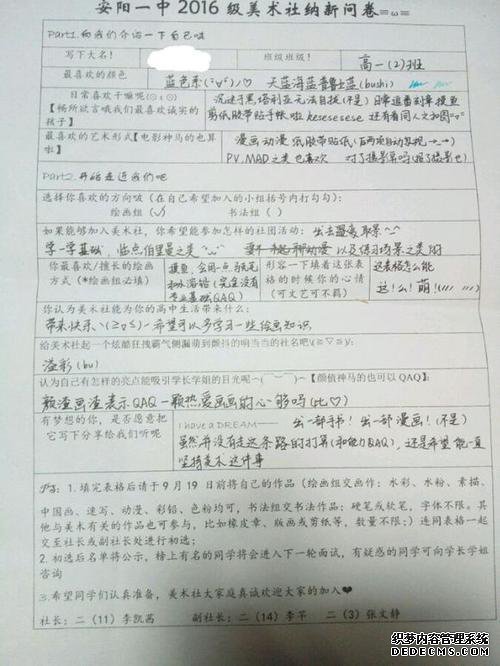 安阳一中2016级美术社纳新问卷=ω=
Part1.向我们介绍一下自己吧
写下大名! 班级班级! 高一(2)班
最喜欢的颜色 蓝色系(≧∀≦)/ 天蓝海蓝普鲁士蓝(bushi)
日常喜欢干嘛呢⊙ε⊙
【畅所欲言哦我们最喜欢诚实的孩子】
沉迷于黑塔利亚无法自拔(不是)日常追番刻章摸鱼
剪纸胶带贴手帐啦kesesesese 还有看同人文如图=▽=
最喜欢的艺术形式【电影神马的也算啦】
漫画动漫 纸胶带贴纸(后两项自动忽视→_→)
PV.MAD之类也喜欢 对了摄影算吗(报了摄影也)
Part2.开始走近我们吧
选择你喜欢的方向吸(在自己希望加入的小组括号内打勾勾):
绘画组(√) 书法组( )
如果能够加入美术社,你希望能参加怎样的社团活动: 出去取景~
学一学基础,临点伯里曼之类 以及练习场景之类的
你最喜欢/擅长的绘画方式(*绘画组必填)
摸鱼,会用一点马克笔和水溶铅(完全没有专业基础QAQ)
形容一下填着这张表格的时候你的心情(可文艺可不羁)
这表格怎么能
这!么!萌!(////)
你认为美术社能为你的高中生活带来什么:
带来快乐\(≧▽≦)~希望可以多学习一些绘画知识
给美术社起一个炫酷狂拽霸气侧漏萌到颤抖的响当当的社名吧\(≧▽≦)/:
溢彩(bu)
认为自己有怎样的亮点能吸引学长学姐的目光呢~(￣▽￣)~【颜值神马的也可以QAQ】:
颜渣画渣表示QAQ 一颗热爱画画的心够吗(比♡)
有梦想的你,是否愿意把它写下分享给我们听呢
I have a DREAM—— 出一部手书!出一部漫画!(不是)
虽然并没有走这条路的打算(和能力QAQ),还是希望能一直
坚持美术这件事
1.填完表格后请于9月19日前将自己的作品(绘画组交画作:水彩、水粉、素描、
中国画、速写、动漫、彩铅、色粉均可,书法组交书法作品:硬笔或软笔,字体不限。其
他与美术有关的作品也可参与,比如橡皮章、版画或剪纸等,数量不限;)连同表格一起
交至社长或副社长处进行初选;
2.初选后名单将公示,榜上有名的同学将会进入下一轮面试,有疑惑的同学可向学长学姐
咨询
3.希望同学们认真准备,美术社大家庭真诚欢迎大家的加入❤
社长:二(11)李凯茜 副社长:二(14)李芊 二(3)张文静
织梦内容管理系统
DEDECMS.COM